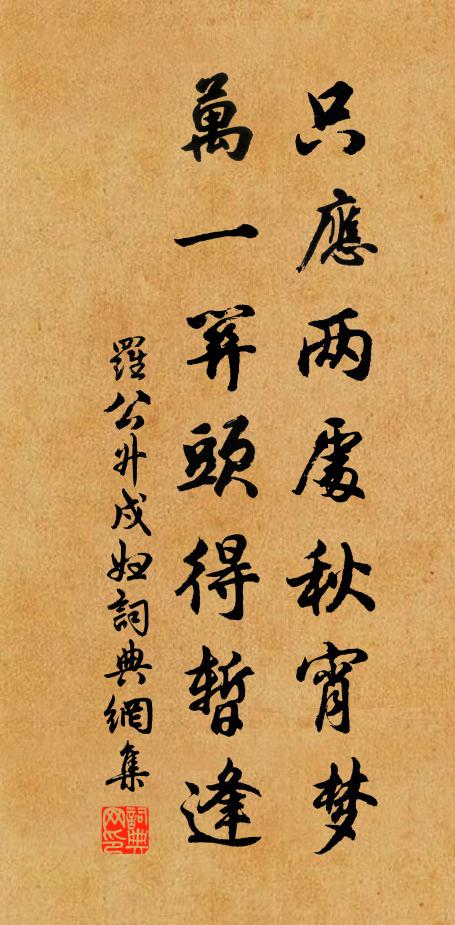 只應两處秋宵梦
萬一關頭得暫逢
羅公升戍妇詞典網集
詞典网印